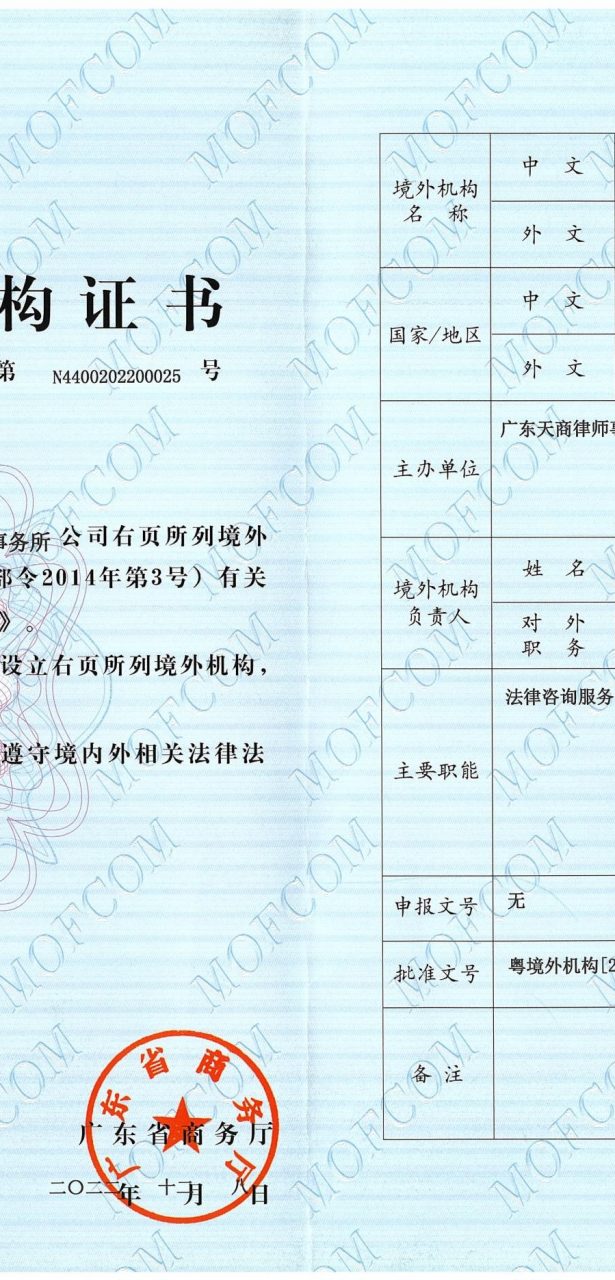 构证书
第 N4400202200025 号
事务所 公司右页所列境外
部令2014年第3号）有关
》。
设立右页所列境外机构，
遵守境内外相关法律法
广东省商务厅
广东省商务厅
二〇二二年 十二月 八日
境外机构
名 称
中 文
外 文
国家/地区
中 文
外 文
主办单位
广东天商律师事
境外机构
负责人
姓 名
对 外
职 务
主要职能
法律咨询服务
申报文号
无
批准文号
粤境外机构[2
备 注
MOFCOM